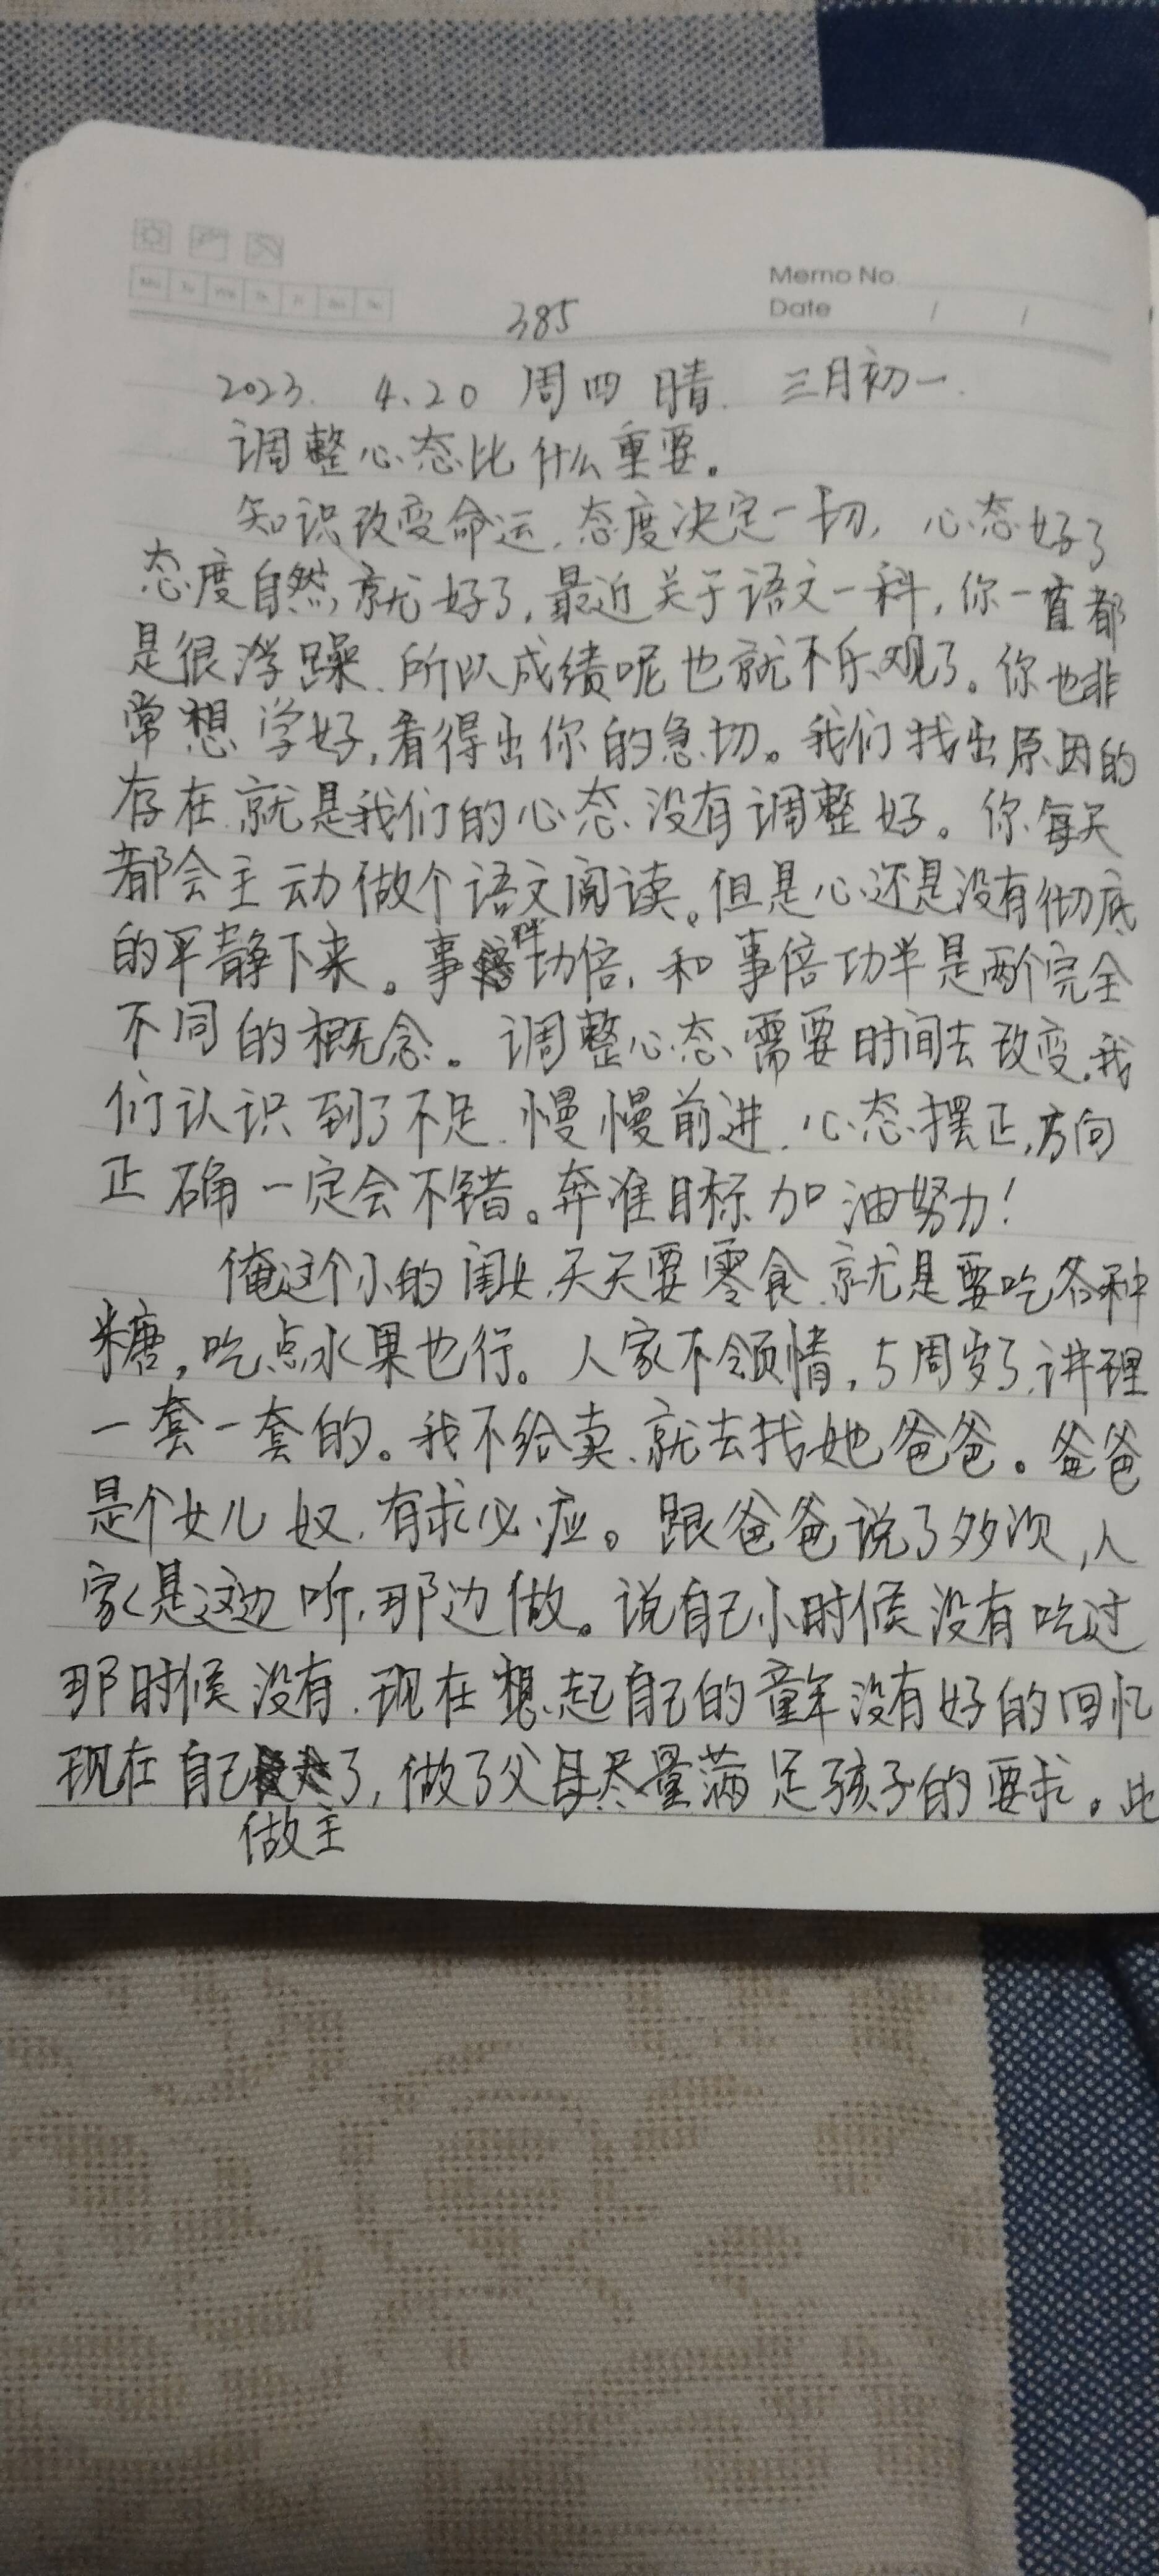 Memo No.
Date / /
385
2023. 4.20 周四 晴. 三月初一.
调整心态比什么重要。
知识改变命运,态度决定一切, 心态好了
态度自然就好了,最近关于语文一科,你一直都
是很浮躁.所以成绩呢也就不乐观了。你也非
常想学好,看得出你的急切。我们找出原因的
存在.就是我们的心态没有调整好。你每天
都会主动做个语文阅读。但是心还是没有彻底
的平静下来。事半功倍,和事倍功半是两个完全
不同的概念。调整心态需要时间去改变.我
们认识到了不足.慢慢前进.心态摆正,方向
正确一定会不错。奔准目标加油努力!
俺这个小的闺女,天天要零食.就是要吃各种
糖,吃点水果也行。人家不领情,5周岁了,讲理
一套一套的。我不给卖.就去找她爸爸。爸爸
是个女儿奴.有求必应。跟爸爸说了多次,人
家是这边听.那边做。说自己小时候没有吃过
那时候没有.现在想起自己的童年没有好的回忆
现在自己做主了,做了父母尽量满足孩子的要求。此